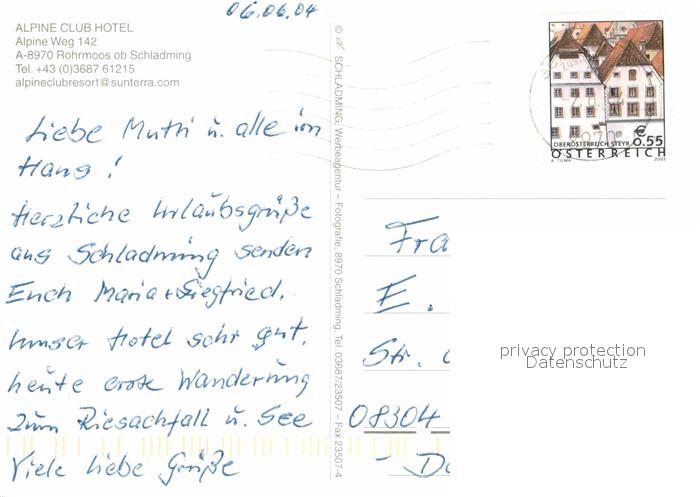 06.06.04
ALPINE CLUB HOTEL
Alpine Weg 142
A-8970 Rohrmoos ob Schladming
Tel. +43 (0)3687 61215
alpineclubresort@sunterra.com
Liebe Mutti u. alle im
Haus!
Herzliche Urlaubsgrüße
aus Schladming senden
Euch Maria + Siegfried.
Unser Hotel sehr gut,
heute erste Wanderung
zum Riesachfall u. See
Viele liebe Grüße
© SCHLADMING, Werbeagentur – Fotografie, 8970 Schladming, Tel. 03687/23507 – Fax 23507-4
OBERÖSTERREICH STEYR € 0.55
ÖSTERREICH
A. TUMA 2003
Fra
E.
Str.
08304
privacy protection
Datenschutz